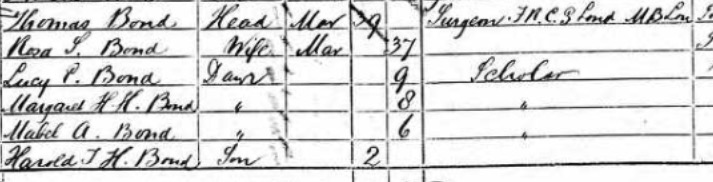 Thomas Bond Head Mar 39 Surgeon F.R.C.S Lond M B Lon
Rosa S. Bond Wife Mar 37
Lucy P. Bond Daur 9 Scholar
Margaret H. H. Bond " 8 "
Mabel A. Bond " 6 "
Harold T. H. Bond Son 2